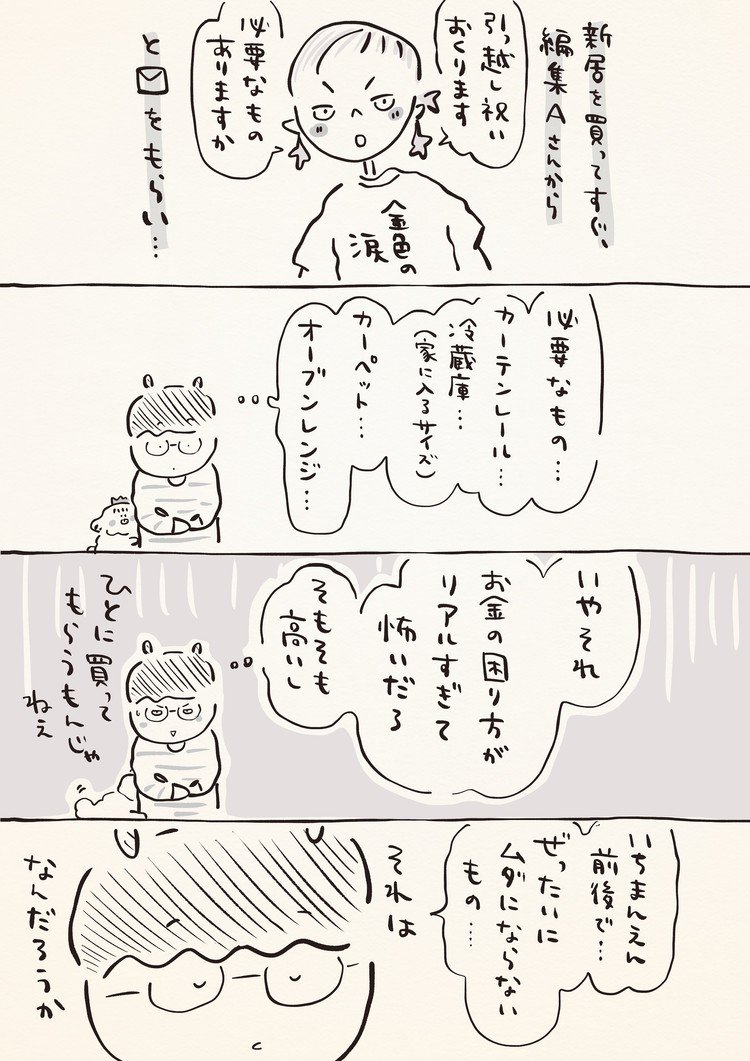 新居を買ってすぐ、
編集Aさんから
引っ越し祝い
おくります
必要なもの
ありますか
と✉をもらい…
金色の
涙
必要なもの…
カーテンレール…
冷蔵庫…
(家に入るサイズ)
カーペット…
オーブンレンジ…
いやそれ
お金の困り方が
リアルすぎて
怖いだろ
そもそも
高いし
ひとに買って
もらうもんじゃ
ねえ
いちまんえん
前後で…
ぜったいに
ムダにならない
もの……
それは
なんだろうか